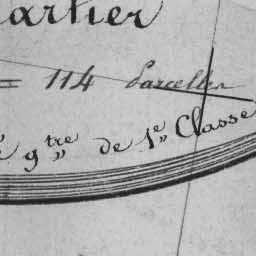 artier
= 114 Parcelles
g.tre de 1.e Classe